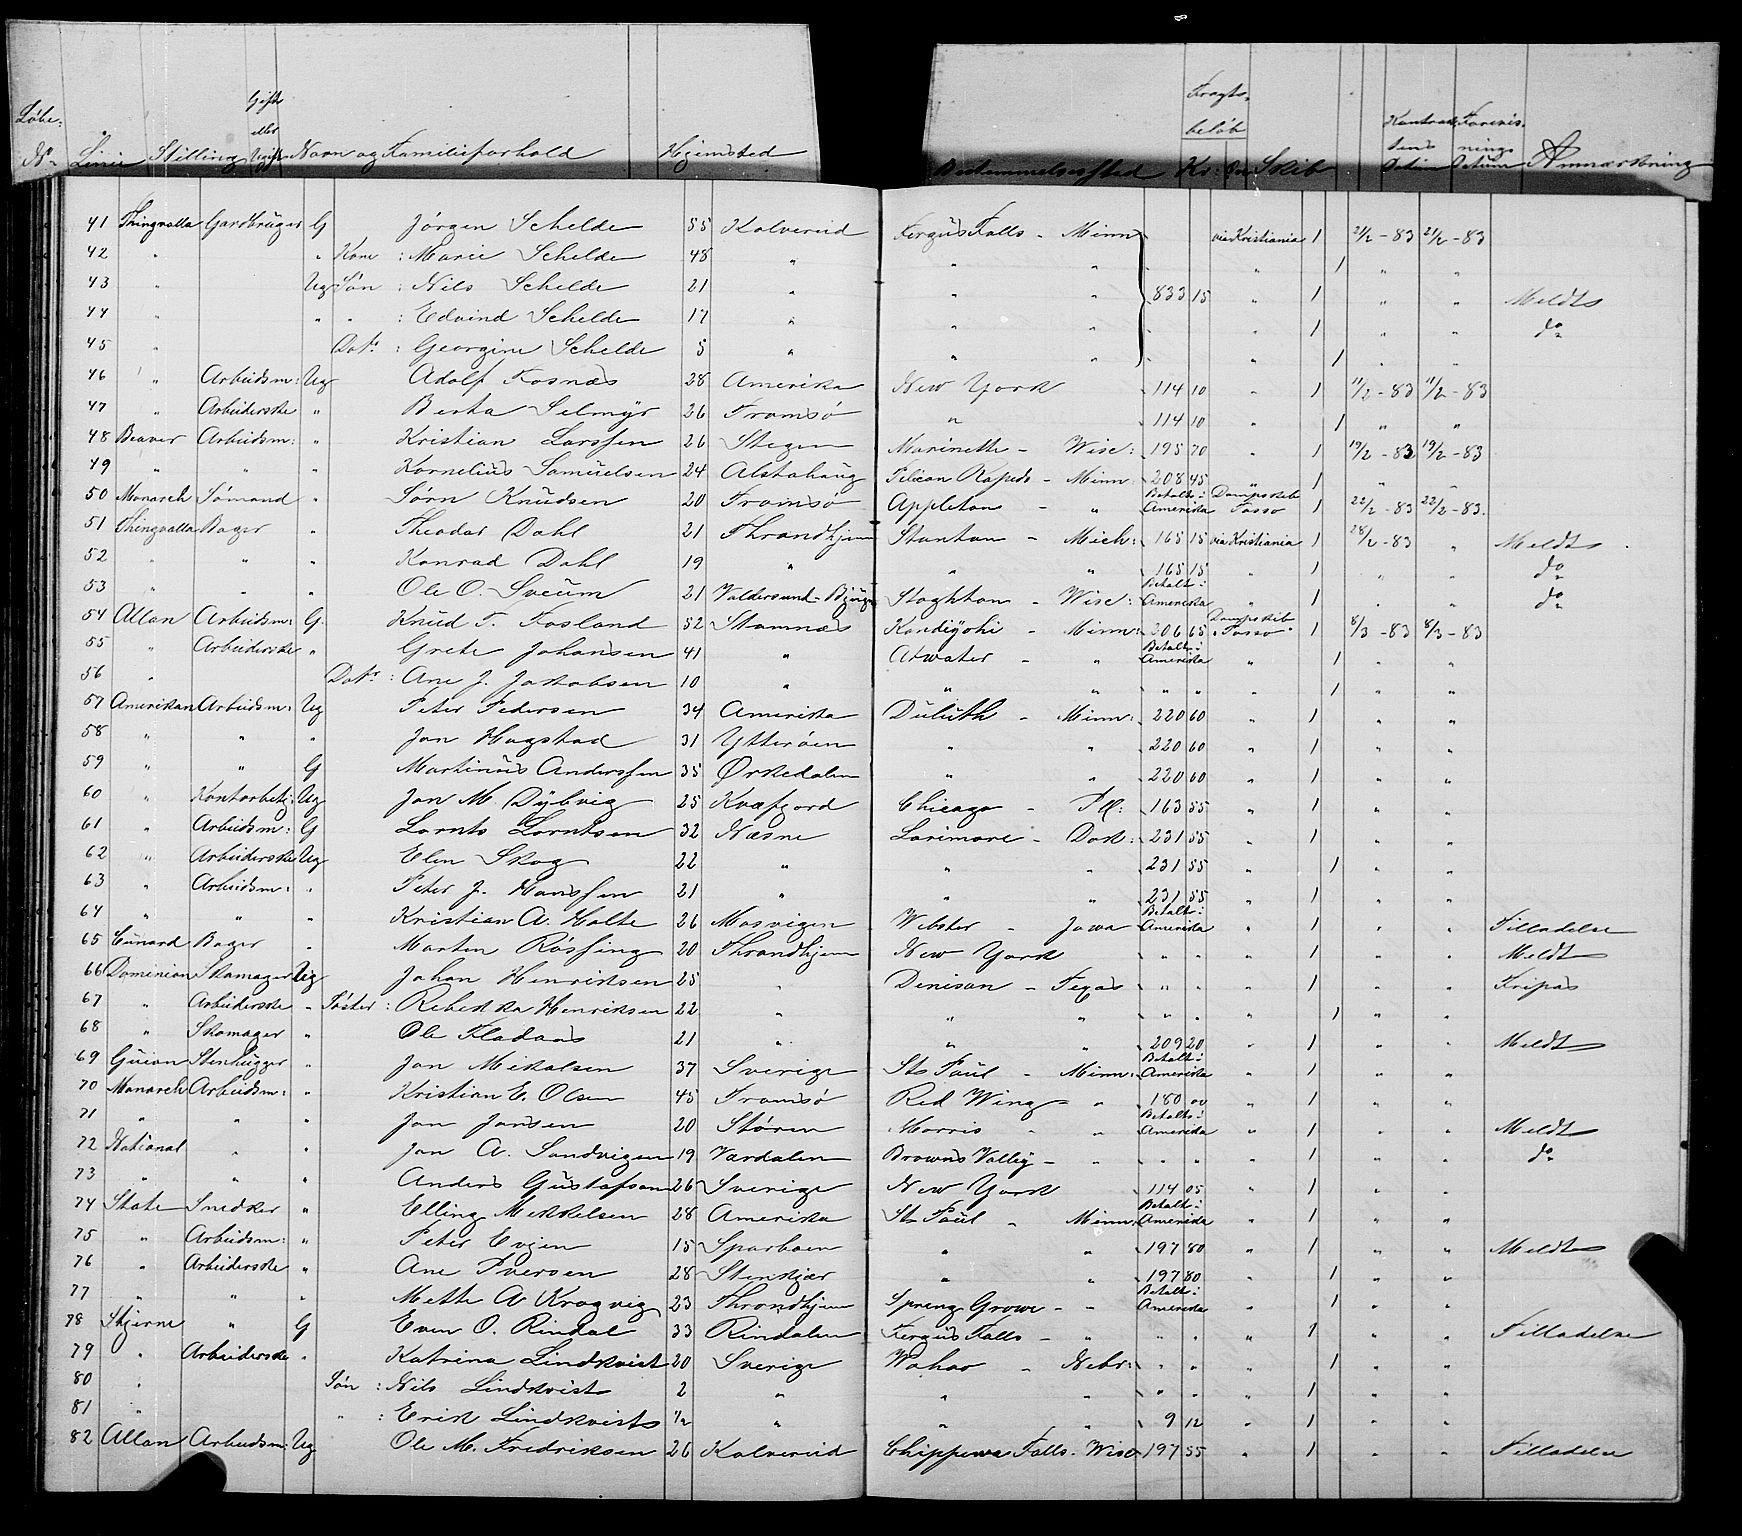 Løbe: N. Linie Stilling Gift eller Ugift Navn og Familieforhold Hjemsted Bestemmelsessted Fragtbeløb Kr: Øre Skib Datum Datum Anmærkning
41 Thingvalla Gardbruger G Jørgen Schelde 55 Kolvereid Fergus Falls - Minn via Kristiania 1 21/2-83 21/2-83
42 " " Kone : Marie Schelde 48 " " " " 1 " "
43 " Ug Søn : Nils Schelde 21 " " " 833 15 " 1 " " Meldt
44 " " " : Edvind Schelde 17 " " " " 1 " " do
45 " Dat. : Georgine Schelde 5 " " " " 1 " "
46 " Arbeidsm: Ug Adolf Fosnæs 28 Amerika New York 114 10 " 1 11/2-83 11/2-83
47 " Arbeiderske " Berta Selmyr 26 Tromsø " 114 10 " 1 " "
48 Beaver Arbeidsm: " Kristian Larssen 26 Stegen Marinette - Wisc: 195 70 " 1 19/2-83 19/2-83
49 " " " Kornelius Samuelsen 24 Alstahaug Pelican Rapids - Minn 208 45 " 1 " "
50 Monarch Sømand " Sørn Knudsen 20 Tromsø Appleton - " Betalt i Amerika Dampskib Tasso 1 22/2-83 22/2-83.
51 Thingvalla Bager " Theodor Dahl 21 Throndhjem Stanton - Mich: 165 15 via Kristiania 1 28/2-83 " Meldt
52 " " " Konrad Dahl 19 " " " 165 15 " 1 " " do
53 " " " Ole O. Sveum 21 Valdersund - Bjugn Stoghton - Wisc: Betalt i Amerika " 1 " " do
54 Allan Arbeidsm: G. Knud T. Fosland 52 Stamnæs Kandiyohi - Minn: 206 65 Dampskib "Tasso" 1 8/3-83 8/3-83
55 " Arbeiderske " Grete Johansen 41 " Atwater - " Betalt i Amerika " 1 " "
56 " Dat. : Ane J. Jakobsen 10 " " " " " " 1 " "
57 Amerikan Arbeidsm: Ug Peter Pedersen 34 Amerika Duluth - Minn: 220 60 " 1 " "
58 " " " Jon Hagstad 31 Ytterøen " " 220 60 " 1 " "
59 " " G Martinus Anderssen 35 Ørkedalen " " 220 60 " 1 " "
60 " Kontorbetj: Ug Jon M. Dybvig 25 Kvæfjord Chicago - Ill: 163 55 " 1 " "
61 " Arbeidsm: G Lornts Lorntsen 32 Næsne Larimore - Dak: 231 55 " 1 " "
62 " Arbeiderske Ug Elen Skog 22 " " " 231 55 " 1 " "
63 " Arbeidsm: " Peter J. Hanssen 21 " " " 231 55 " 1 " "
64 " " " Kristian A. Holte 26 Mosvigen Webster - Jowa Betalt i Amerika " 1 " " Tilladelse
65 Cunard Bager " Morten Røssing 20 Throndhjem New York " " " 1 " " Meldt
66 Dominion Skomager Ug Johan Henriksen 25 " Denison - Texas " " " 1 " " Fripas
67 " Arbeiderske " Søster : Rebekka Henriksen 22 " " " " " " 1 " "
68 " Skomager " Ole Fladaas 21 " " " 209 20 " 1 " " Meldt
69 Guion Stenhugger " Jon Mikalsen 37 Sverige St. Paul - Minn: Betalt i Amerika " 1 " "
70 Monarch Arbeidsm: " Kristian E. Olsen 45 Tromsø Red Wing - " 180 00 " 1 " "
71 " " " Jon Jonsen 20 Støren Morris - " Betalt i Amerika " 1 " " Meldt
72 National " " Jon A. Sandvigen 19 Værdalen Browns Valley - " " " " 1 " " do
73 " " " Anders Gustafson 26 Sverige New York 114 05 " 1 " "
74 State Snedker " Elling Mekkelsen 28 Amerika St. Paul - Minn: Betalt i Amerika " 1 " "
75 " Arbeidsm: " Peter Evjen 15 Sparboen " " 197 80 " 1 " " Meldt
76 " Arbeiderske " Ane Iversen 28 Stenkjær " " 197 80 " 1 " "
77 " " " Mette A Krogvig 23 Throndhjem Spreng Growe - " Betalt i Amerika " 1 " "
78 Stjerne " G Even O. Rindal 33 Rindalen Fergus Falls - " " " " 1 " " Tilladelse
79 " Arbeiderske " Katrina Lindkvist 20 Sverige Wahoo - Nebr: " " " 1 " "
80 " Søn : Nils Lindkvist 2 " " " " " " 1 " "
81 " " : Erik Lindkvist 1/2 " " " 9 12 " 1 " "
82 Allan Arbeidsm: Ug Ole M. Fredriksen 26 Kolvereid Chippewa Falls - Wisc 197 55 " 1 " " Tilladelse